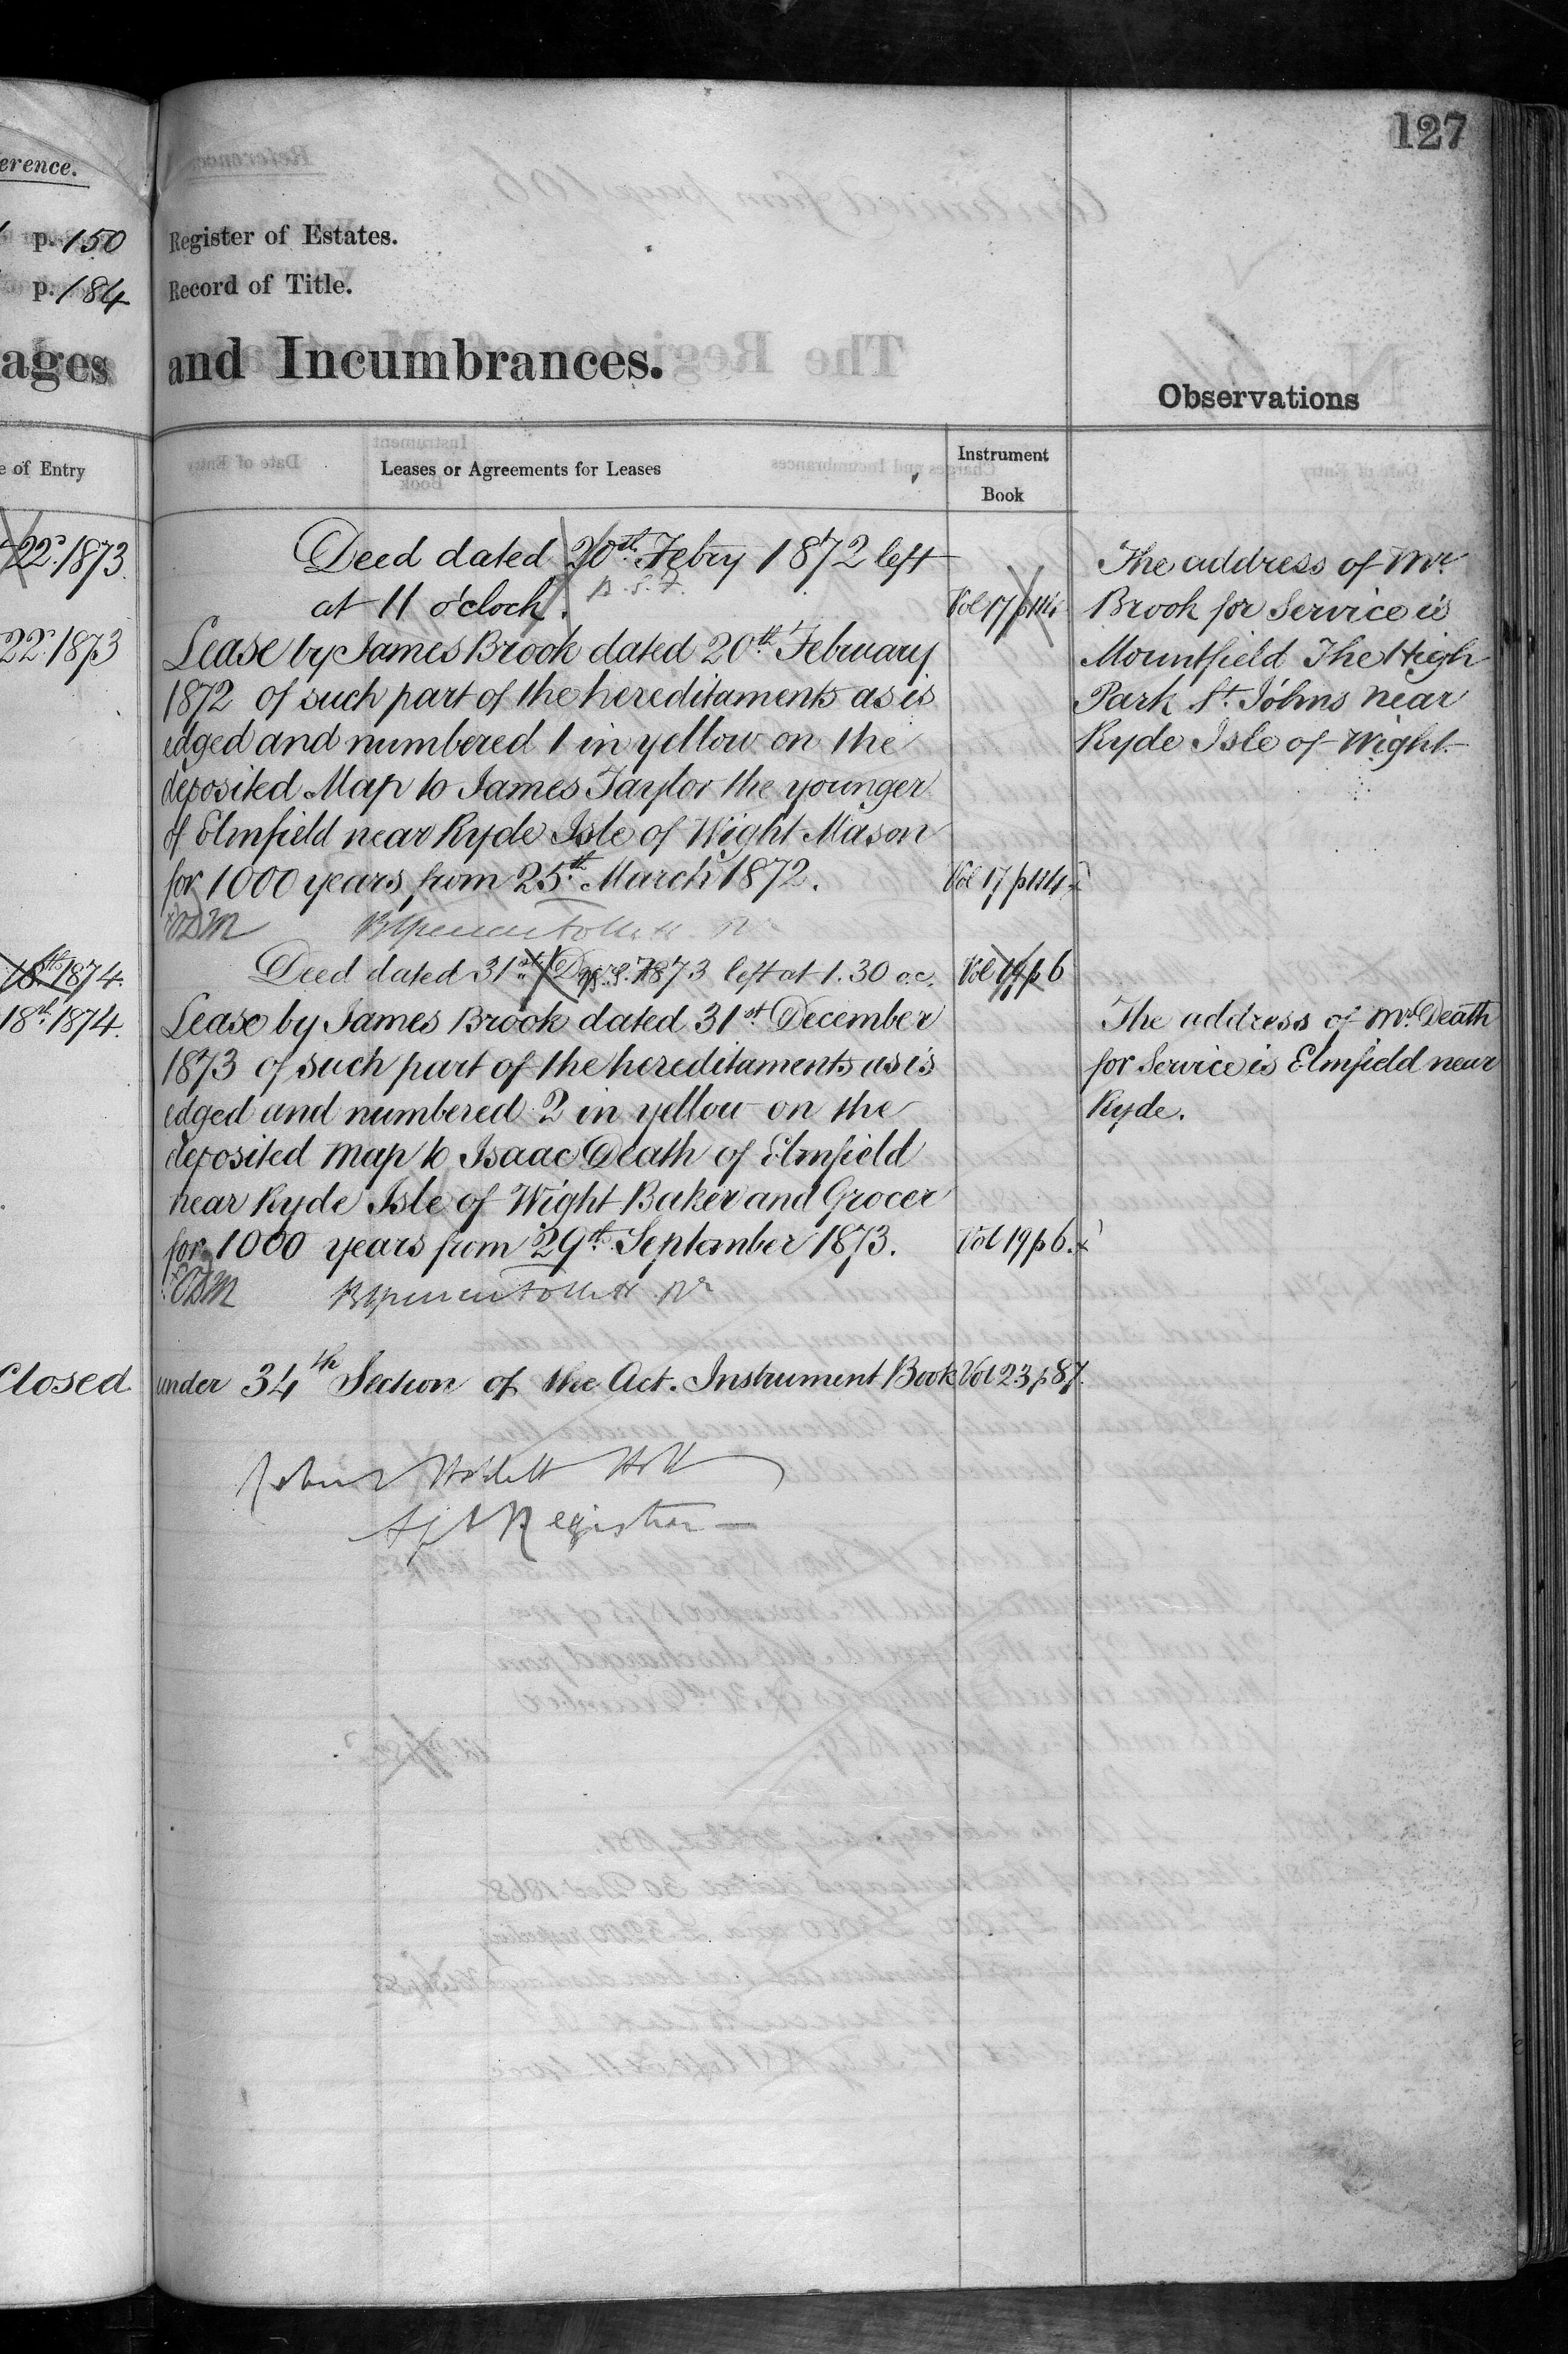 127
erence.
p. 150
p. 184
ages
e of Entry
22. 1873
22. 1873
18th 1874.
18th 1874.
Closed
Register of Estates.
Record of Title.
and Incumbrances.
Observations
Leases or Agreements for Leases
Instrument
Book
Deed dated 20th Febry 1872 left
at 11 o'clock.
B. S. F.
Vol 17 p 114
Lease by James Brook dated 20th February
1872 of such part of the hereditaments as is
edged and numbered 1 in yellow on the
deposited Map to James Taylor the younger
of Elmfield near Ryde Isle of Wight Mason
for 1000 years from 25th March 1872.
Vol 17 p 114
Deed dated 31st Decr. 1873 left at 1.30 o.c.
Vol 19 p 6
Lease by James Brook dated 31st December
1873 of such part of the hereditaments as is
edged and numbered 2 in yellow on the
deposited Map to Isaac Death of Elmfield
near Ryde Isle of Wight Baker and Grocer
for 1000 years from 29th September 1873.
Vol 19 p 6.
under 34th Section of the Act. Instrument Book Vol 23 p 87.
Registrar
The address of Mr.
Brook for Service is
Mountfield The High
Park St. Johns near
Ryde Isle of Wight
The address of Mr. Death
for Service is Elmfield near
Ryde.